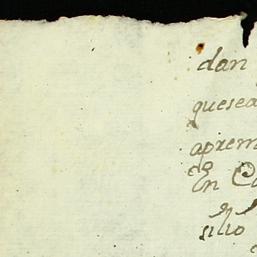 dan
quesea
aprem
En Co
silio